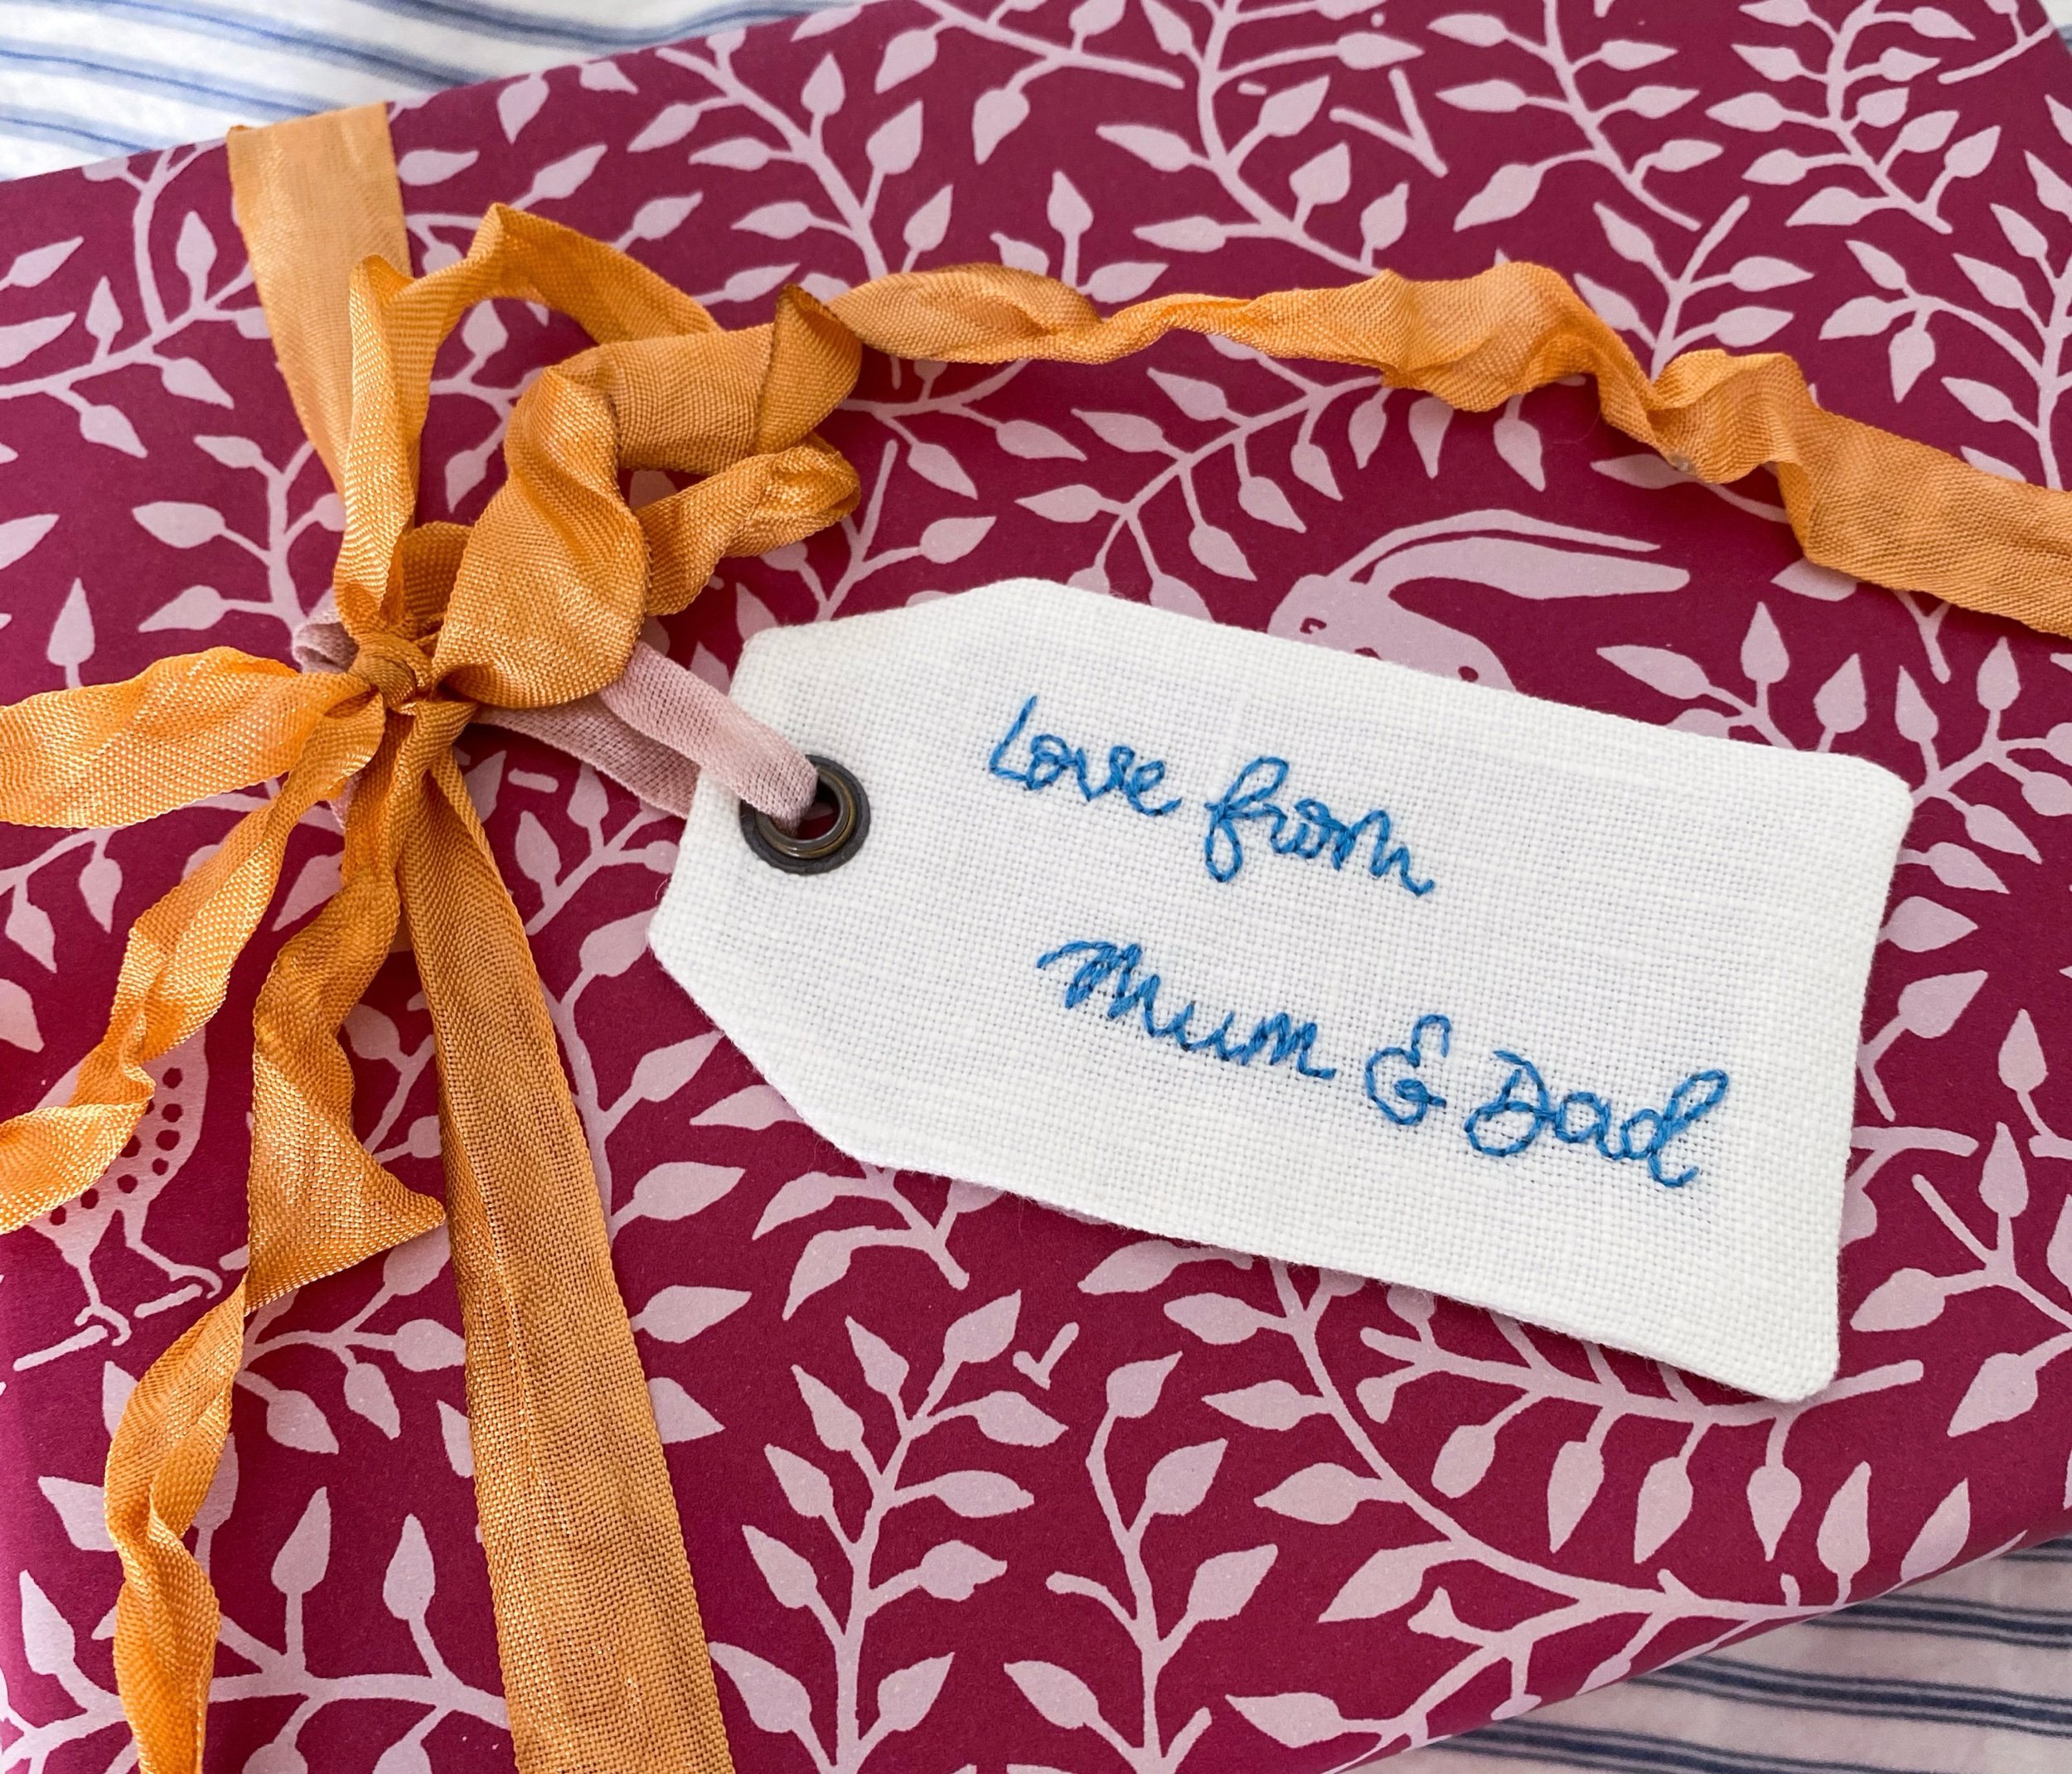 Love from
Mum & Dad